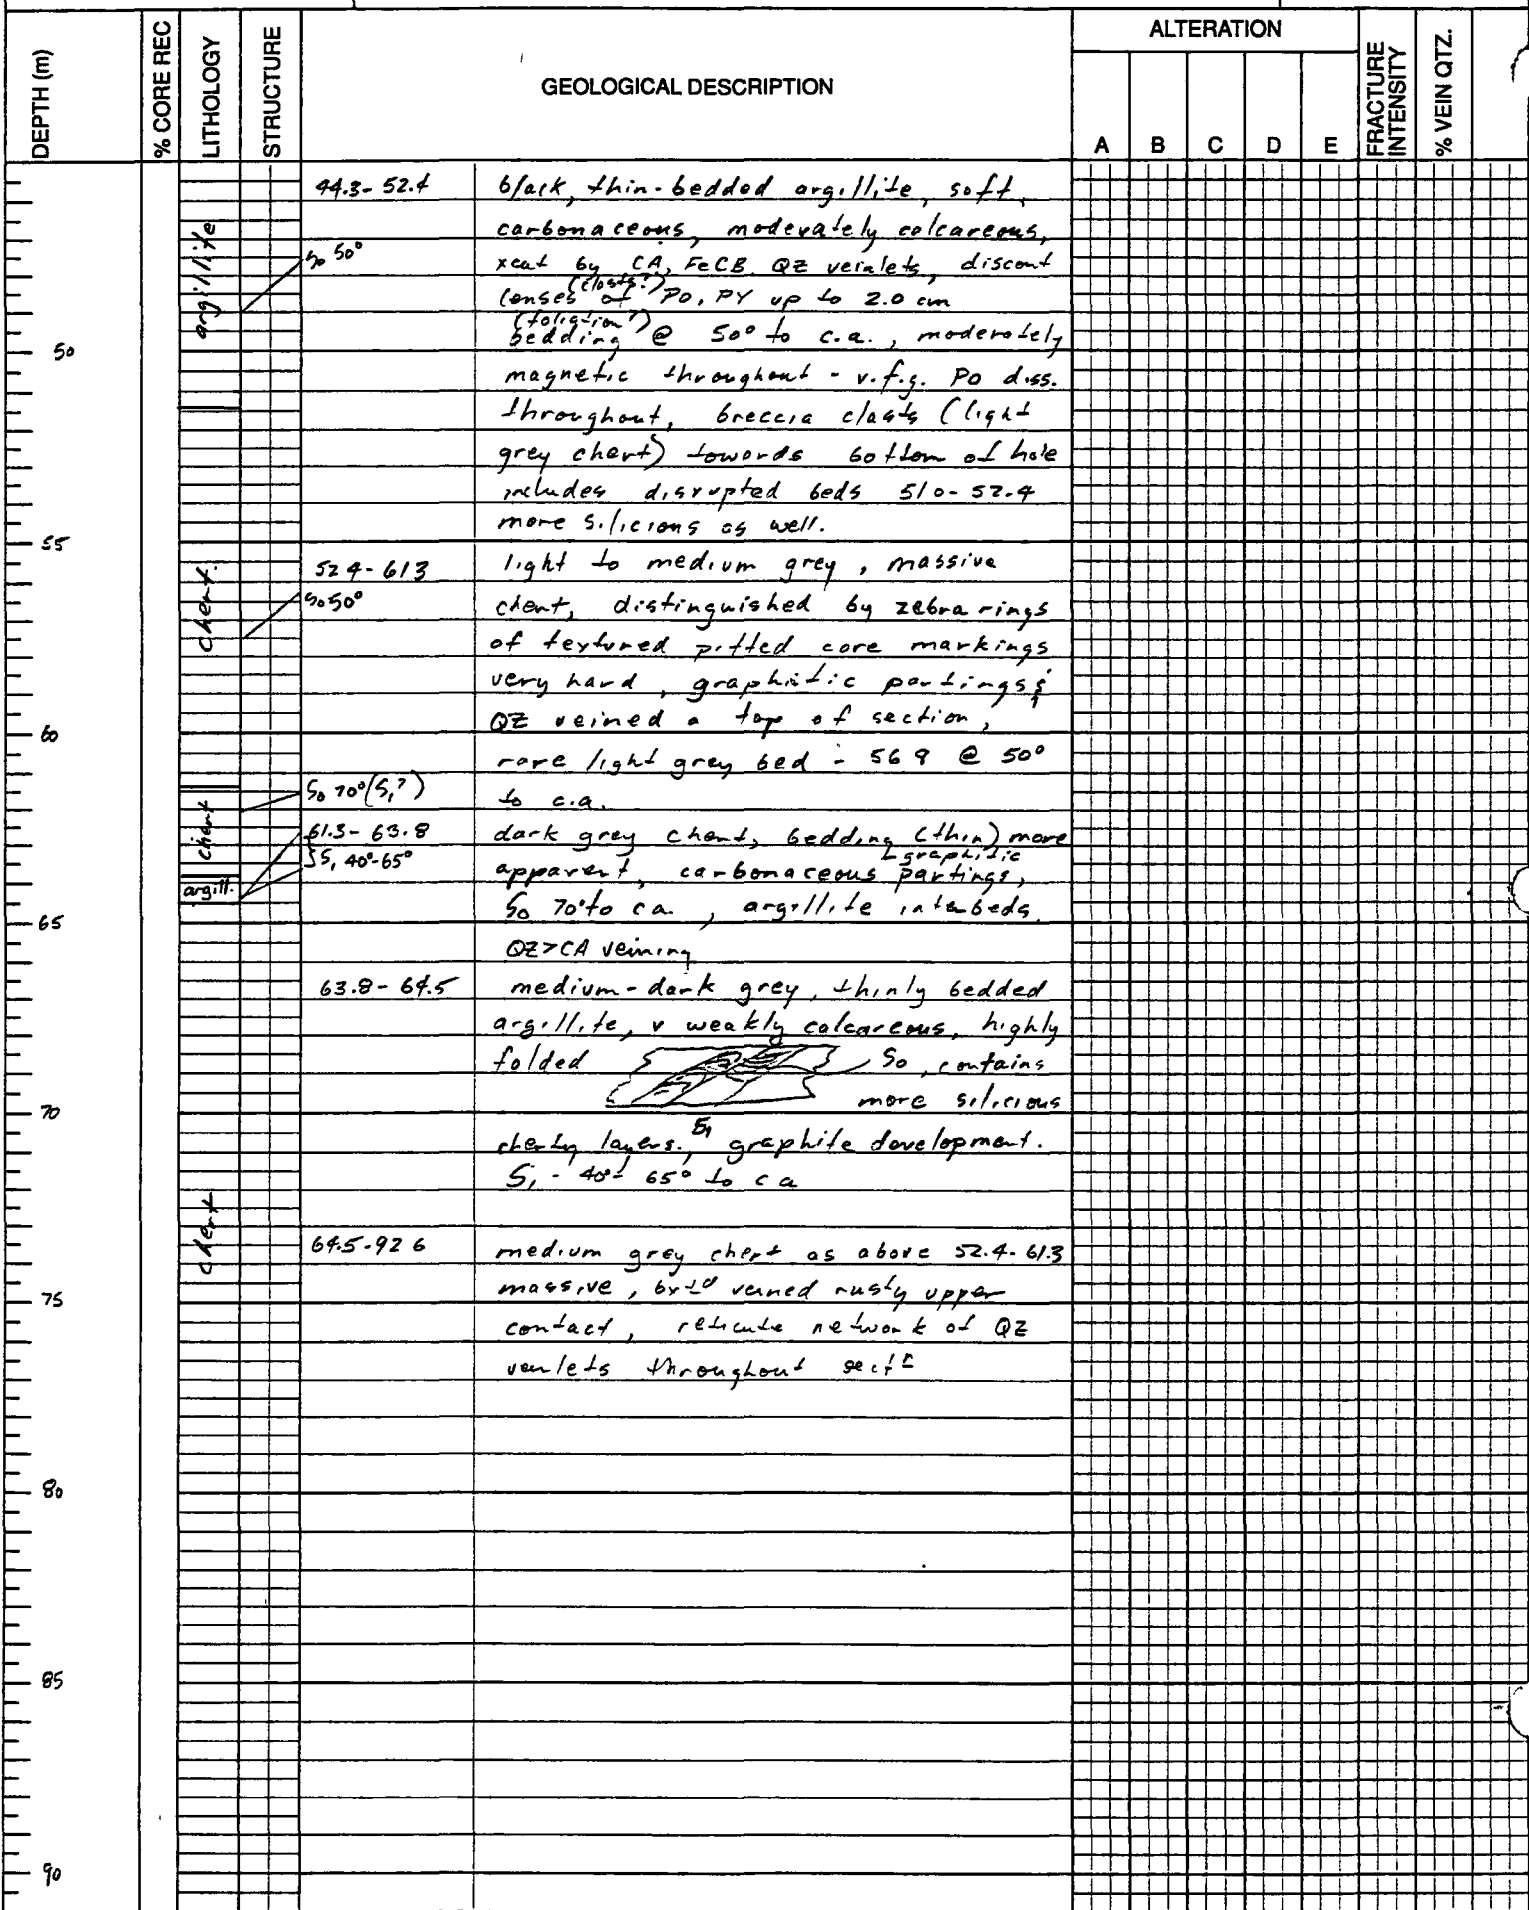 DEPTH (m)
% CORE REC
LITHOLOGY
STRUCTURE
GEOLOGICAL DESCRIPTION
ALTERATION
A B C D E
FRACTURE INTENSITY
% VEIN QTZ.
argillite
44.3-52.4 black, thin-bedded argillite, soft,
carbonaceous, moderately calcareous,
S₀ 50° xcut by CA, FeCB, QZ veinlets, discont
(clasts?)
lenses of PO, PY up to 2.0 cm
(foliation?)
50 bedding @ 50° to c.a., moderately
magnetic throughout - v.f.g. PO diss.
throughout, breccia clasts (light
grey chert) towards bottom of hole
includes disrupted beds 51 0-52.4
more silicious as well.
55
chert
52 4-61 3 light to medium grey, massive
S₀ 50° chert, distinguished by zebra rings
of textured pitted core markings
very hard, graphitic partings;
60 QZ veined a top of section,
rare light grey bed - 56 9 @ 50°
S₀ 70° (S₁?) to c.a.
chert
61.3-63.8 dark grey chert, bedding (thin) more
graphitic
S₁ 40°-65° apparent, carbonaceous partings,
argill.
S₀ 70° to ca., argillite interbeds.
65
QZ>CA veining
63.8-64.5 medium-dark grey, thinly bedded
argillite, v weakly calcareous, highly
folded S₀, contains
70 more silicious
cherty layers. S₁ graphite development.
S₁ - 40° 65° to c a
chert
64.5-92 6 medium grey chert as above 52.4-61.3
75 massive, bxtd veined rusty upper
contact, reticute network of QZ
veinlets throughout sectn
80
85
90